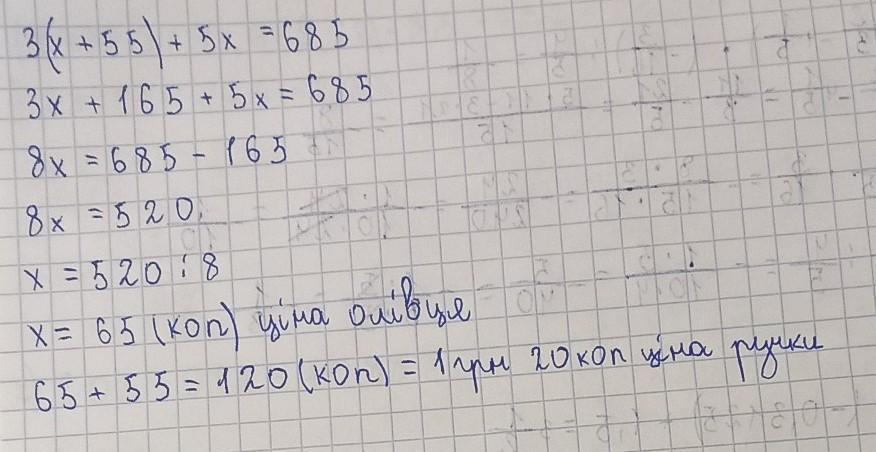 3(x + 55) + 5x = 685
3x + 165 + 5x = 685
8x = 685 - 165
8x = 520
x = 520 : 8
x = 65 (коп) ціна олівця
65 + 55 = 120 (коп) = 1 грн 20 коп ціна ручки